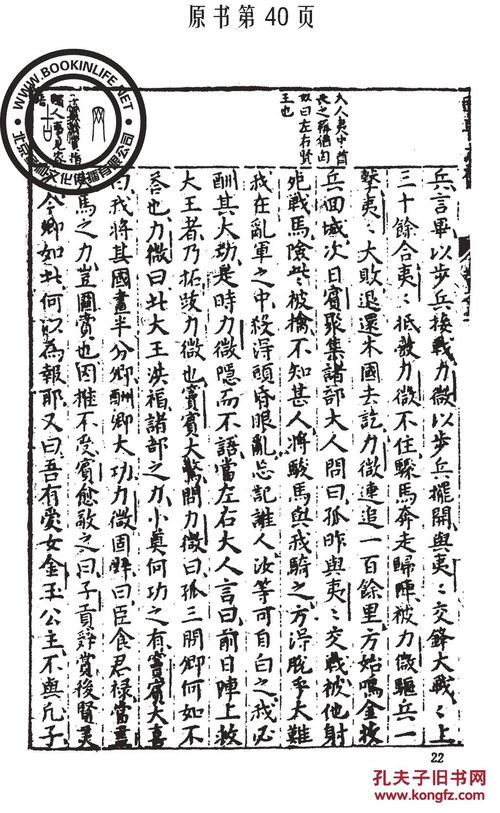 原书第40页
兵言畢以步兵接戰力微以步兵擺開與夷〻交鋒大戰〻上
三十餘合夷〻抵敵力微不住驟馬奔走歸陣被力微驅兵一
擊夷〻大敗退還本國去訖力微連追一百餘里方始鳴金收
大人夷中酋
長之稱猶匈
奴曰左右賢
王也
兵回城次日賓聚集諸部大人問曰孤昨與夷〻交戰被他射
死戰馬險些被擒不知甚人將駿馬與我騎之方得脫乎大難
我在亂軍之中殺得頭昏眼亂忘記誰人汝等可自白之我必
酬其大功是時力微隱而不語當左右大人言曰前日陣上救
大王者乃拓跋力微也竇賓大驚問力微曰孤三問卿何如不
答也力微曰此大王洪福諸部之力小莫何功之有竇賓大喜
曰我將其國畫半分卿酬卿大功力微固辭曰臣食君祿當盡
馬之力豈圖賞也因推不受賓愈敬之曰子貢辭賞後賢美
今卿如此何以為報耶又曰吾有愛女金玉公主不與凡子
WWW.BOOKINLIFE.NET
网
22
孔夫子旧书网
www.kongfz.com